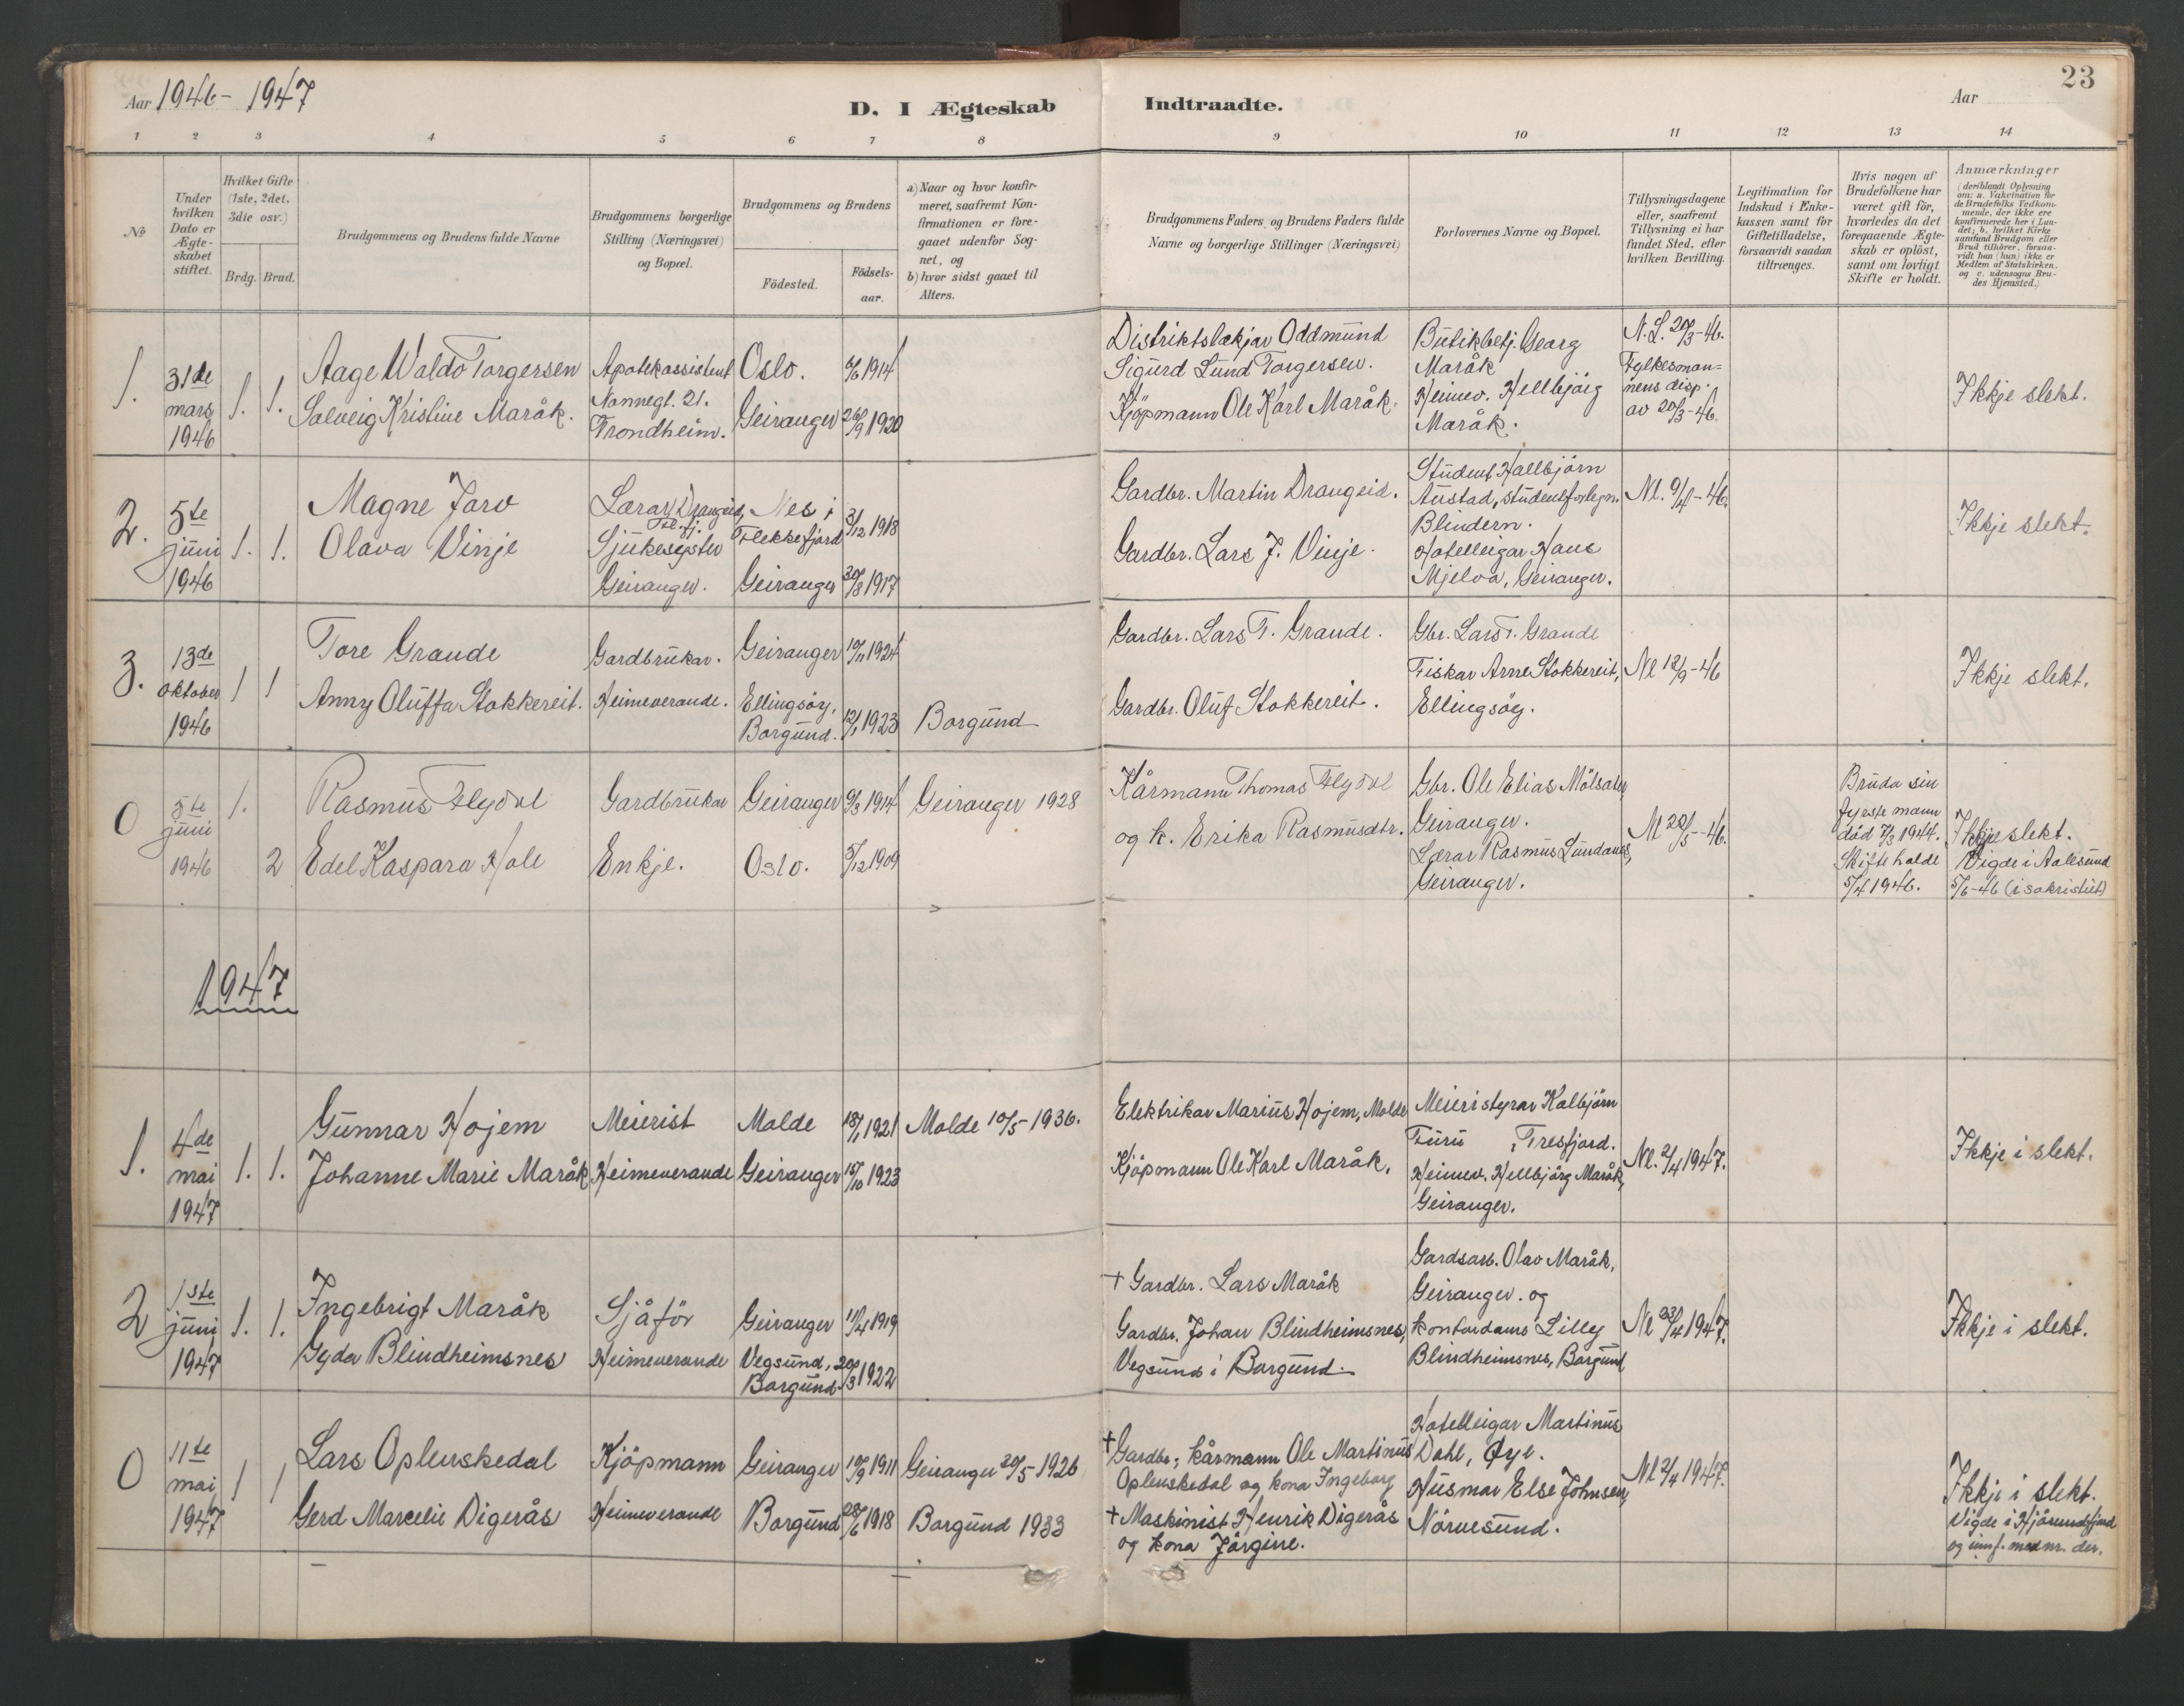 Aar 1946-1947
D. I Ægteskab Indtraadte.
Aar
23
1 2 3 4 5 6 7 8 9 10 11 12 13 14
№
Under hvilken Dato er Ægteskabet stiftet.
Hvilket Gifte (1ste, 2det, 3die osv.)
Brdg. Brud.
Brudgommens og Brudens fulde Navne
Brudgommens borgerlige Stilling (Næringsvei) og Bopæl.
Brudgommens og Brudens
Fødested.
Fødselsaar.
a) Naar og hvor konfirmeret, saafremt Konfirmationen er foregaaet udenfor Sognet, og
b) hvor sidst gaaet til Alters.
Brudgommens Faders og Brudens Faders fulde Navne og borgerlige Stillinger (Næringsvei)
Forlovernes Navne og Bopæl.
Tillysningsdagene eller, saafremt Tillysning ei har fundet Sted, efter hvilken Bevilling.
Legitimation for Indskud i Enkekassen samt for Giftetilladelse, forsaavidt saadan tiltrænges.
Hvis nogen af Brudefolkene har været gift før, hvorledes da det foregaaende Ægteskab er opløst, samt om lovligt Skifte er holdt.
Anmærkninger
(deriblandt Oplysning om: a. Vakcination for de Brudefolks Vedkommende, der ikke ere konfirmerede her i Landet; b. hvilket Kirkesamfund Brudgom eller Brud tilhører, forsaavidt han (hun) ikke er Medlem af Statskirken, og c. udensogns Brudes Hjemsted.)
1.
31de
mars
1946
1. 1.
Aage Waldo Torgersen
Solveig Kristine Maråk.
Apotekassistent
Nonnegt. 21.
Trondheim.
Oslo.
Geiranger
6/6 1914
26/9 1920
Distriktslækjar Oddmund
Sigurd Lund Torgersen.
Kjöpmann Ole Karl Maråk.
Butikbetj. Georg
Maråk
Heimev. Hellbjörg
Maråk.
N.L. 20/3-46.
Fylkesman=
nens disp.
av 20/3-46.
Ikkje slekt.
2.
5te
juni
1946
1. 1.
Magne Jaro
Olava Vinje
Lærar, Drangeid,
Fl.fj.
Sjukesyster
Geiranger.
Nes i
Flekkefjord
Geiranger
3/12 1918
30/8 1917
Gardbr. Martin Drangeid.
Gardbr. Lars J. Vinje.
Student Hallbjörn
Austad, studentforlegn.
Blindern.
Hotelleigar Hans
Mjelva, Geiranger.
Nl. 9/4-46.
Ikkje slekt.
3.
13de
oktober
1946
1 1
Tore Grande
Anny Oluffa Stokkereit.
Gardbrukar.
Heimeverande.
Geiranger
Ellingsöy,
Borgund.
10/11 1924
12/1 1923
Borgund
Gardbr. Lars T. Grande.
Gardbr. Oluf Stokkereit.
Gbr. Lars T. Grande
Fiskar Arne Stokkereit,
Ellingsöy.
Nl 12/9-46
Ikkje slekt.
0
5te
juni
1946
1.
2
Rasmus Flydal
Edel Kaspara Hole
Gardbrukar
Enkje.
Geiranger
Oslo.
9/3 1914
5/12 1909
Geiranger 1928
Kårmann Thomas Flydal
og k. Erika Rasmusdtr.
Gbr. Ole Elias Mölsæter,
Geiranger.
Lærar Rasmus Lundanes,
Geiranger.
Nl 22/5-46.
Bruda sin
fyrste mann
död 7/3 1944.
Skifte halde
5/4 1946.
Ikkje slekt.
Vigde i Aalesund
5/6-46 (i sakristiet)
1947
1.
4de
mai
1947
1. 1.
Gunnar Hojem
Johanne Marie Maråk
Meierist
Heimeverande
Molde
Geiranger
18/1 1921
15/10 1923
Molde 10/5-1936.
Elektrikar Marius Hojem, Molde
Kjöpmann Ole Karl Maråk.
Meieristyrar Kolbjörn
Furu, Tresfjord.
Heimev. Hellbjörg Maråk,
Geiranger.
Nl. 2/4 1947.
Ikkje i slekt.
2
1ste
juni
1947
1. 1.
Ingebrigt Maråk
Gyda Blindheimsnes
Sjåför
Heimeverande
Geiranger
Vegsund,
Borgund
11/4 1919
20/3 1922
+ Gardbr. Lars Maråk
Gardbr. Johan Blindheimsnes,
Vegsund i Borgund.
Gardsarb. Olav Maråk,
Geiranger. og
kontordame Lilly
Blindheimsnes, Borgund
Nl 23/4 1947.
Ikkje i slekt.
0
11te
mai
1947
1 1
Lars Oplenskedal
Gerd Marcelie Digerås
Kjöpmann
Heimeverande
Geiranger
Borgund
10/9 1911
28/6 1918
Geiranger 20/5 1926
Borgund 1933
+ Gardbr., kårmann Ole Martinus
Oplenskedal og kona Ingeborg
+ Maskinist Henrik Digerås
og kona Jörgine.
Hotelleigar Martinus
Dahl, Øye.
Husmor Else Johnsen,
Nörvesund.
Nl 2/4 1947.
Ikkje i slekt.
Vigde i Hjörundfjord
og innf. med nr. der.